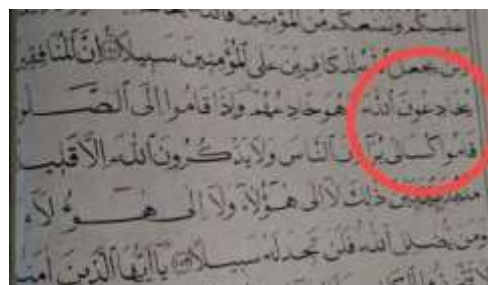 عليكم ونمنعكم من المؤمنين فالله
يجعل الله للكافرين على المؤمنين سبيلا إن المنافقين
يخادعون الله وهو خادعهم وإذا قاموا إلى الصلو
قاموا كسالى يرآءون الناس ولا يذكرون الله إلا قليلا
مذبذبين ذلك لا إلى هؤلاء ولا إلى هؤلاء
ومن يضلل الله فلن تجد له سبيلا يا أيها الذين آمنوا